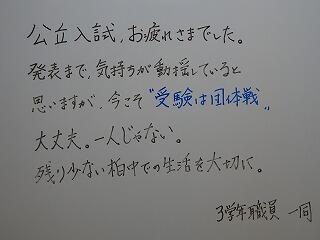 公立入試,お疲れさまでした。
発表まで,気持ちが動揺していると
思いますが,今こそ〝受験は団体戦〟
大丈夫。一人じゃない。
残り少ない柏中での生活を大切に。
3学年職員 一同